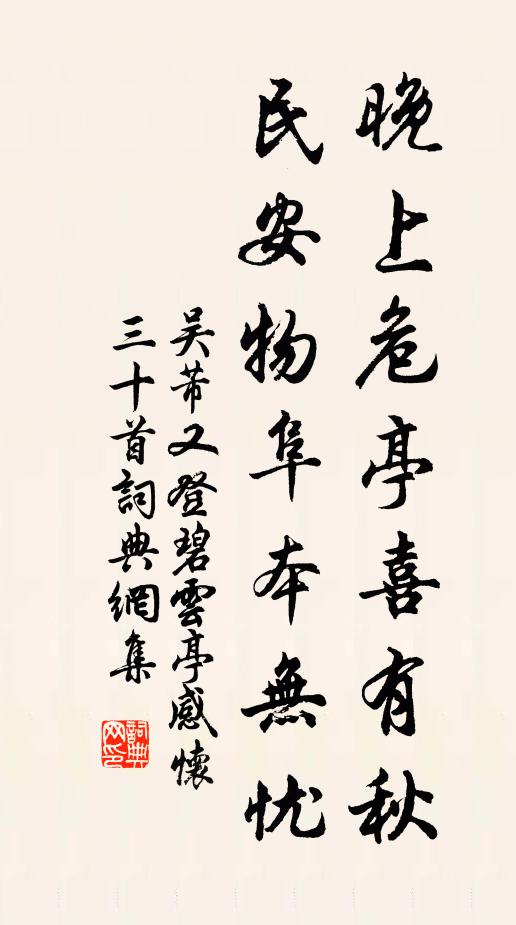 晚上危亭喜有秋
民安物阜本無忧
吳芾又登碧雲亭感懷
三十首詞典網集
詞典网印